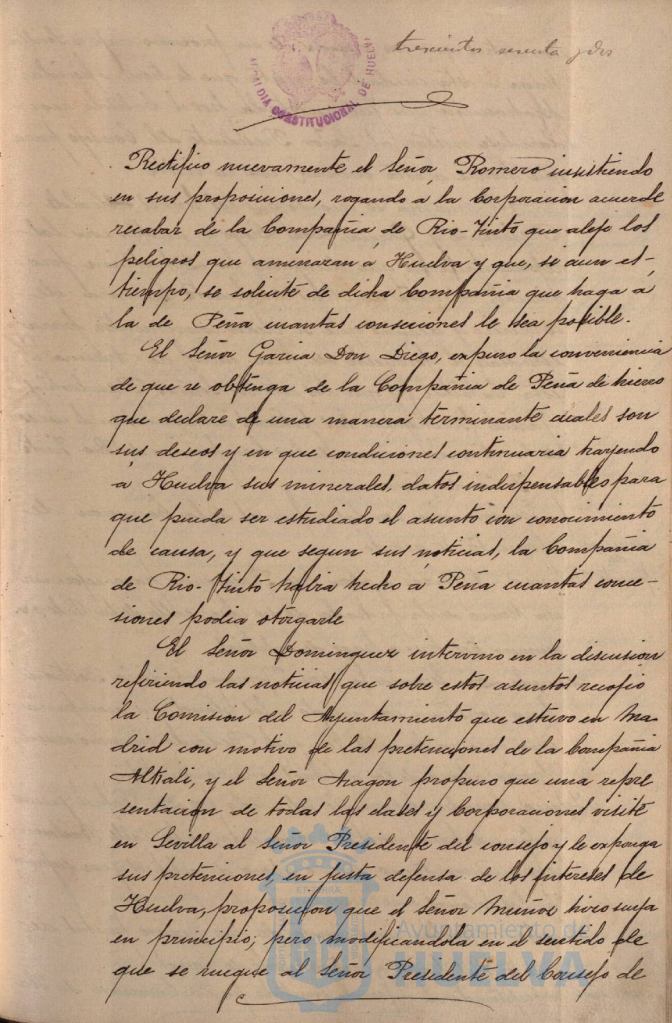 trescientos sesenta y dos
ALCALDIA CONSTITUCIONAL DE HUELVA
Rectifico nuevamente el Señor Romero insistiendo
en sus proposiciones, rogando á la Corporacion acuerde
recabar de la Compañia de Rio-Tinto que aleje los
peligros que amenazan á Huelva y que, si aun es-
tiempo, se solicite de dicha Compañia que haga á
la de Peña cuantas conseciones le sea posible.
El Señor Garcia Don Diego, expuso la conveniencia
de que se obtenga de la Compañia de Peña de hierro
que declare de una manera terminante cuales son
sus deseos y en que condiciones continuaria trayendo
á Huelva sus minerales, datos indispensables para
que pueda ser estudiado el asunto con conocimiento
de causa, y que segun sus noticias, la Compañia
de Rio-Tinto habia hecho á Peña cuantas conce-
siones podia otorgarle
El Señor Dominguez intervino en la discusion
refiriendo las noticias que sobre estos asuntos recojio
la Comision del Ayuntamiento que estuvo en Ma-
drid con motivo de las pretenciones de la Compañia
Alkali, y el Señor Aragon propuso que una repre
sentacion de todas las clases y Corporaciones visite
en Sevilla al Señor Presidente del consejo y le exponga
sus pretenciones, en justa defensa de los intereses de
Huelva, proposicion que el Señor Muñoz hizo suya
en principio; pero modificandola en el sentido de
que se ruegue al Señor Presidente del Consejo de
Ayuntamiento de
HUELVA